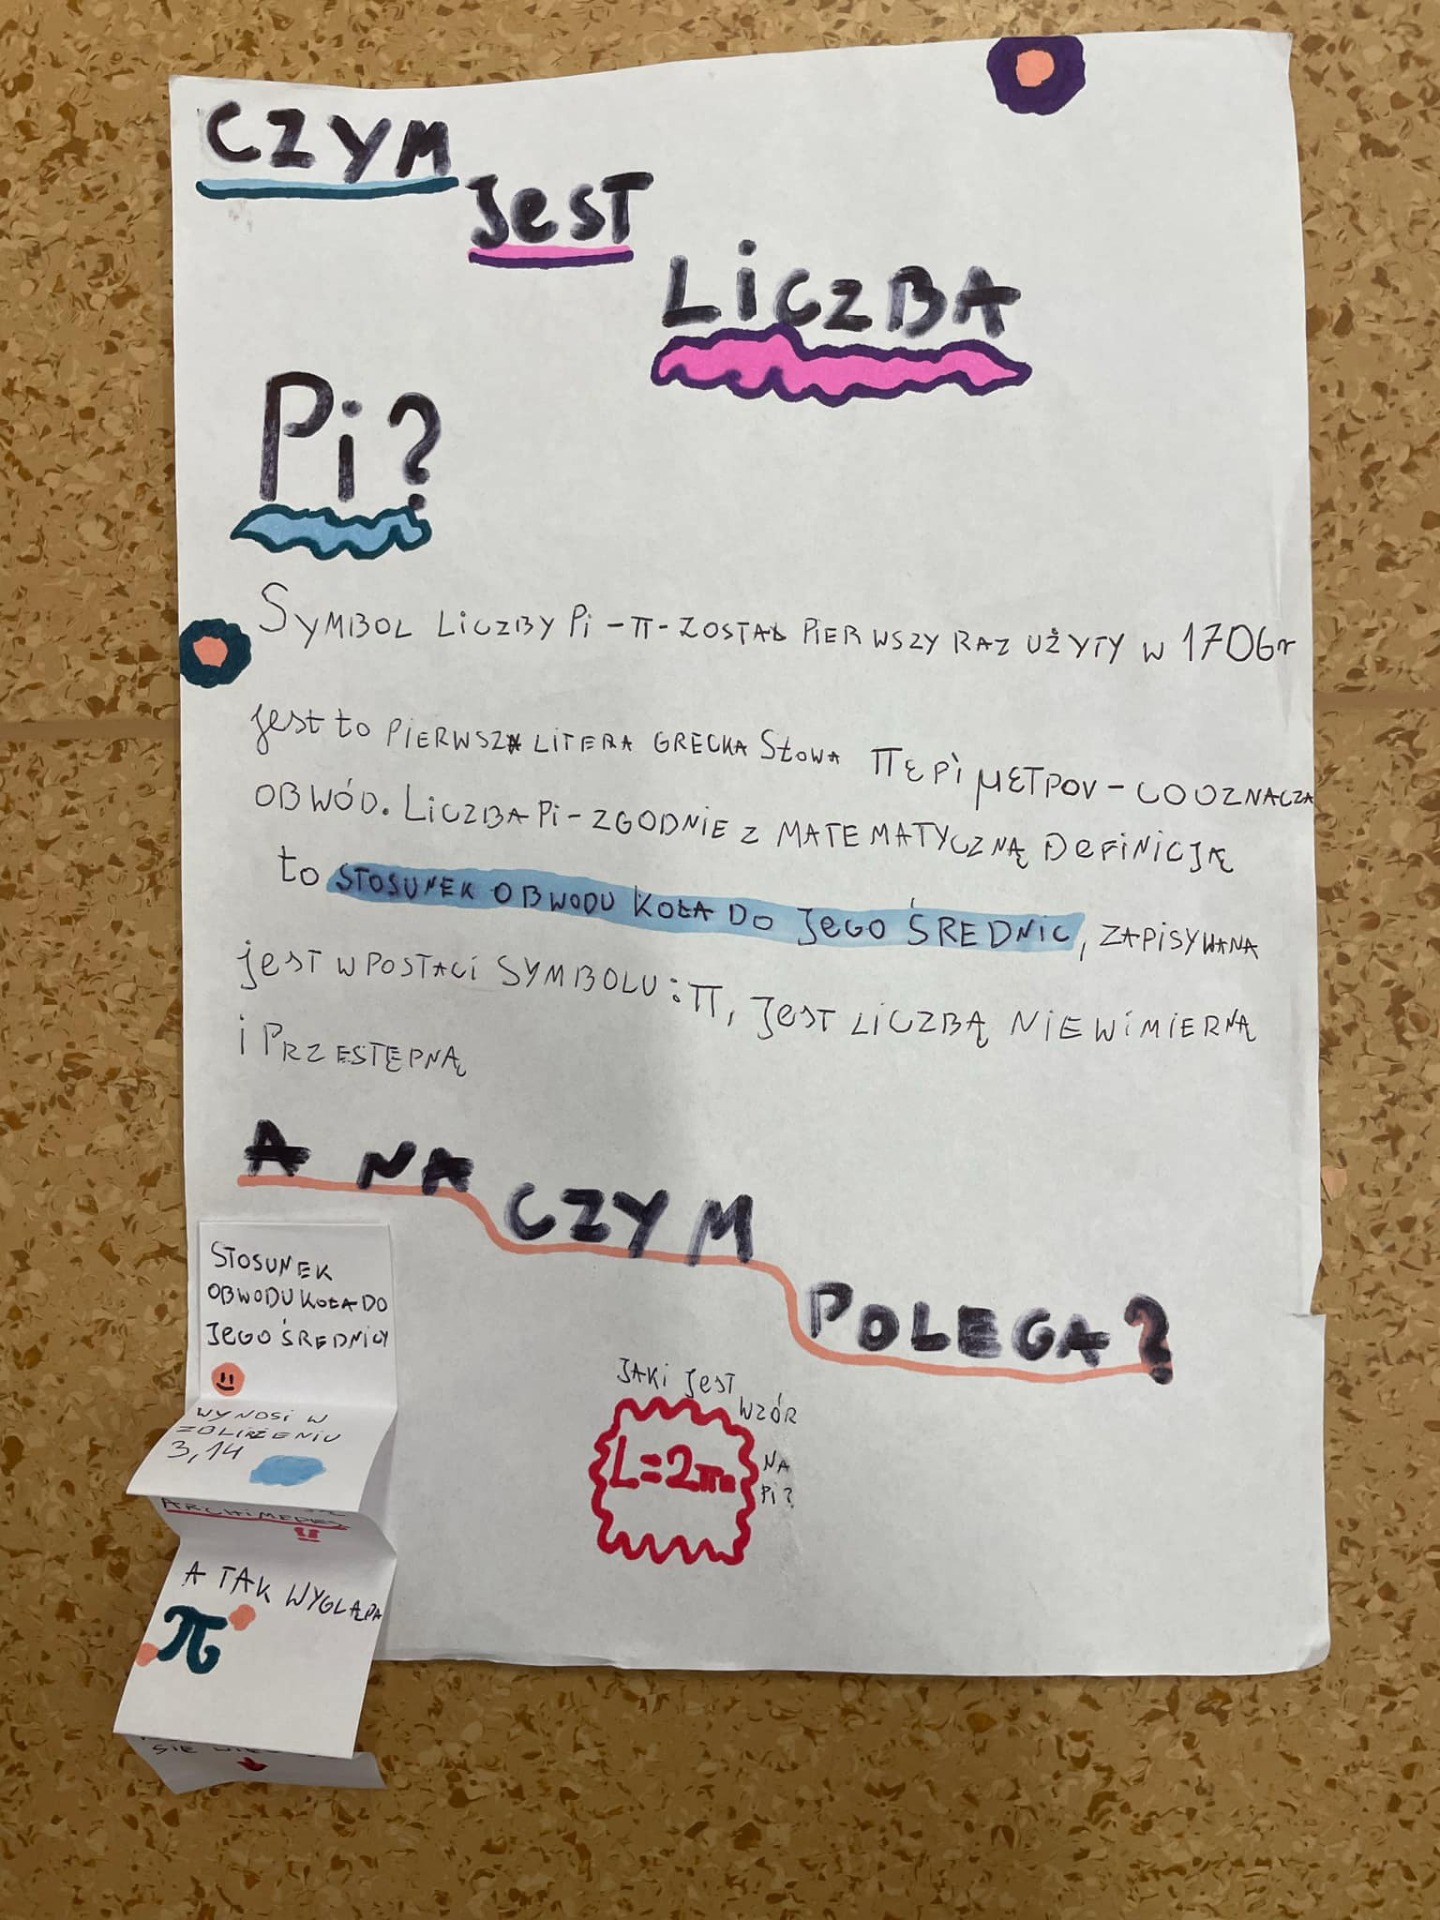 CZYM
JEST
LICZBA
Pi?
SYMBOL LICZBY Pi - π - ZOSTAŁ PIERWSZY RAZ UŻYTY W 1706r
jest to PIERWSZA LITERA GRECKA SŁOWA περί μετρον - CO OZNACZA
OBWÓD. LICZBA Pi - ZGODNIE Z MATEMATYCZNĄ DEFINICJĄ
to STOSUNEK OBWODU KOŁA DO JEGO ŚREDNIC, ZAPISYWANA
jest W POSTACI SYMBOLU : π, JEST LICZBĄ NIEWIMIERNĄ
i PRZESTĘPNĄ
A NA CZYM
POLEGA?
STOSUNEK
OBWODU KOŁA DO
JEGO ŚREDNICY
WYNOSI W
3,14
ARCHIMEDES
!!
A TAK WYGLĄDA
π
SIE
JAKI JEST
WZÓR
NA
Pi?
L=2πr